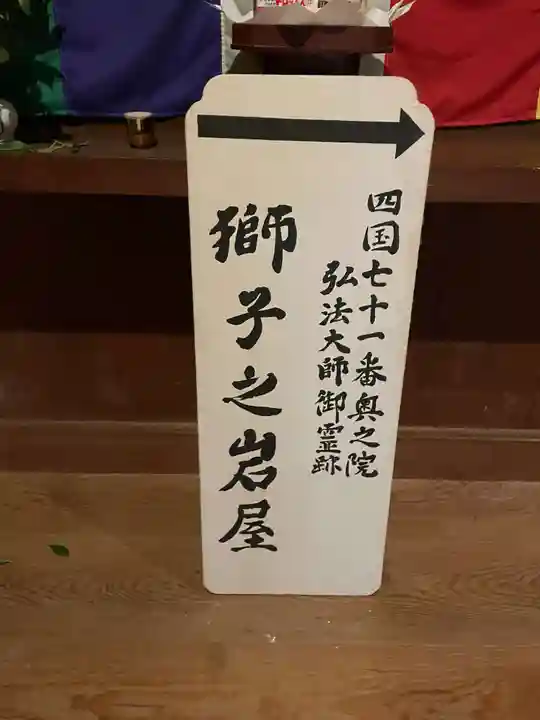 四国七十一番奥之院
弘法大師御霊跡
獅子之岩屋